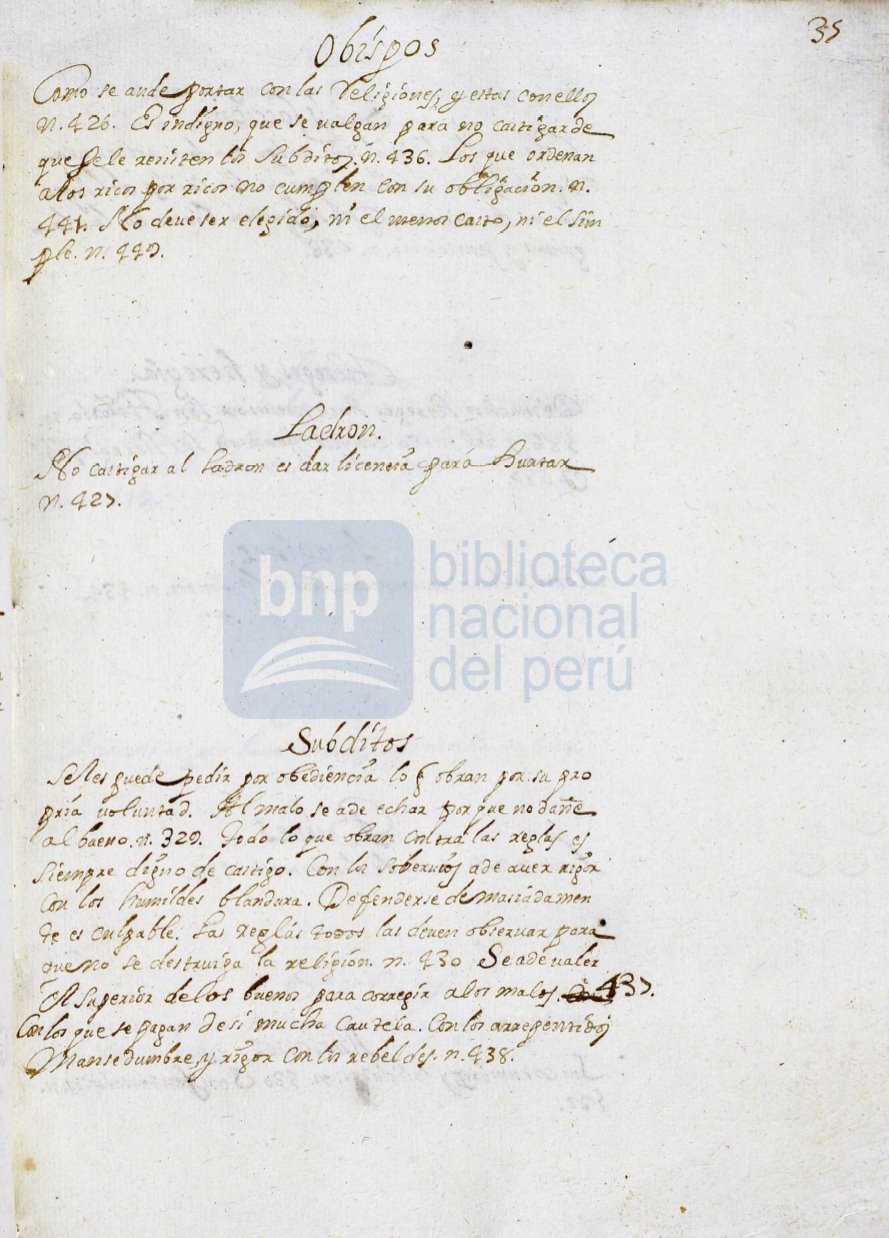 35
Obispos
Como se ande portar con las Religiones, y estas con ellos
n. 426. Es indigno, que se valgan para no castigar de
que se le resisten los Subditos. n. 436. Los que ordenan
a los ricos por ricos no cumplen con su obligación. n.
441. No deve ser elegido, ni el menos casto, ni el sim
ple. n. 449.
Ladron.
No castigar al Ladron es dar licencia para Hurtar
n. 427.
bnp biblioteca
nacional
del perú
Subditos
Seles puede pedir por obediencia lo q obran por su pro
pria voluntad. Al malo se ade echar por que no dañe
al bueno. n. 329. Todo lo que obran contra las reglas es
siempre digno de castigo. Con los sobervios ade aver rigor
con los humildes blandura. Defenderse demasiadamen
te es culpable. Las reglas todos las deven observar para
que no se destruiga la religión. n. 430 Se ade valer
el Superior de los buenos para corregir a los malos. 437.
Con los que se pagan de sí mucha Cautela. Con los arrepentidos
Mansedumbre, y rigor con los rebeldes. n. 438.